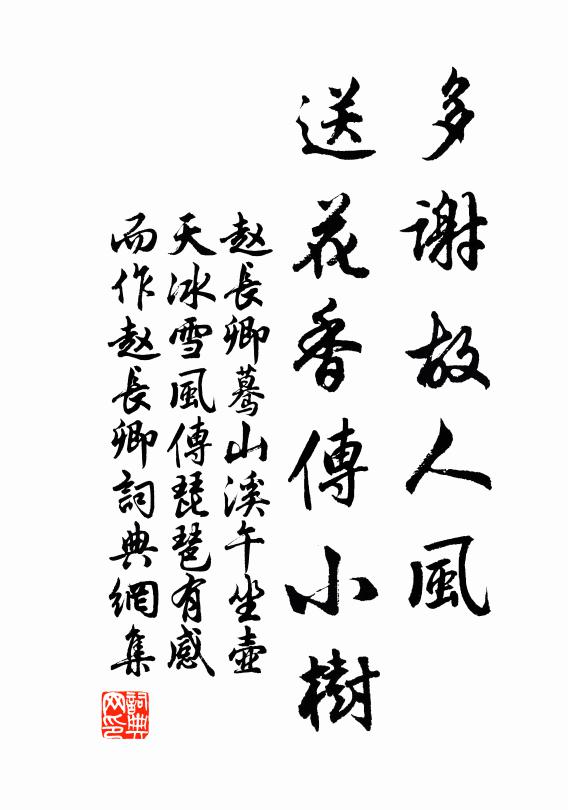 多謝故人風
送花香傳小樹
赵長卿蓦山溪午坐壺
天冰雪風傳琵琶有感
而作赵長卿詞典網集
詞典网印